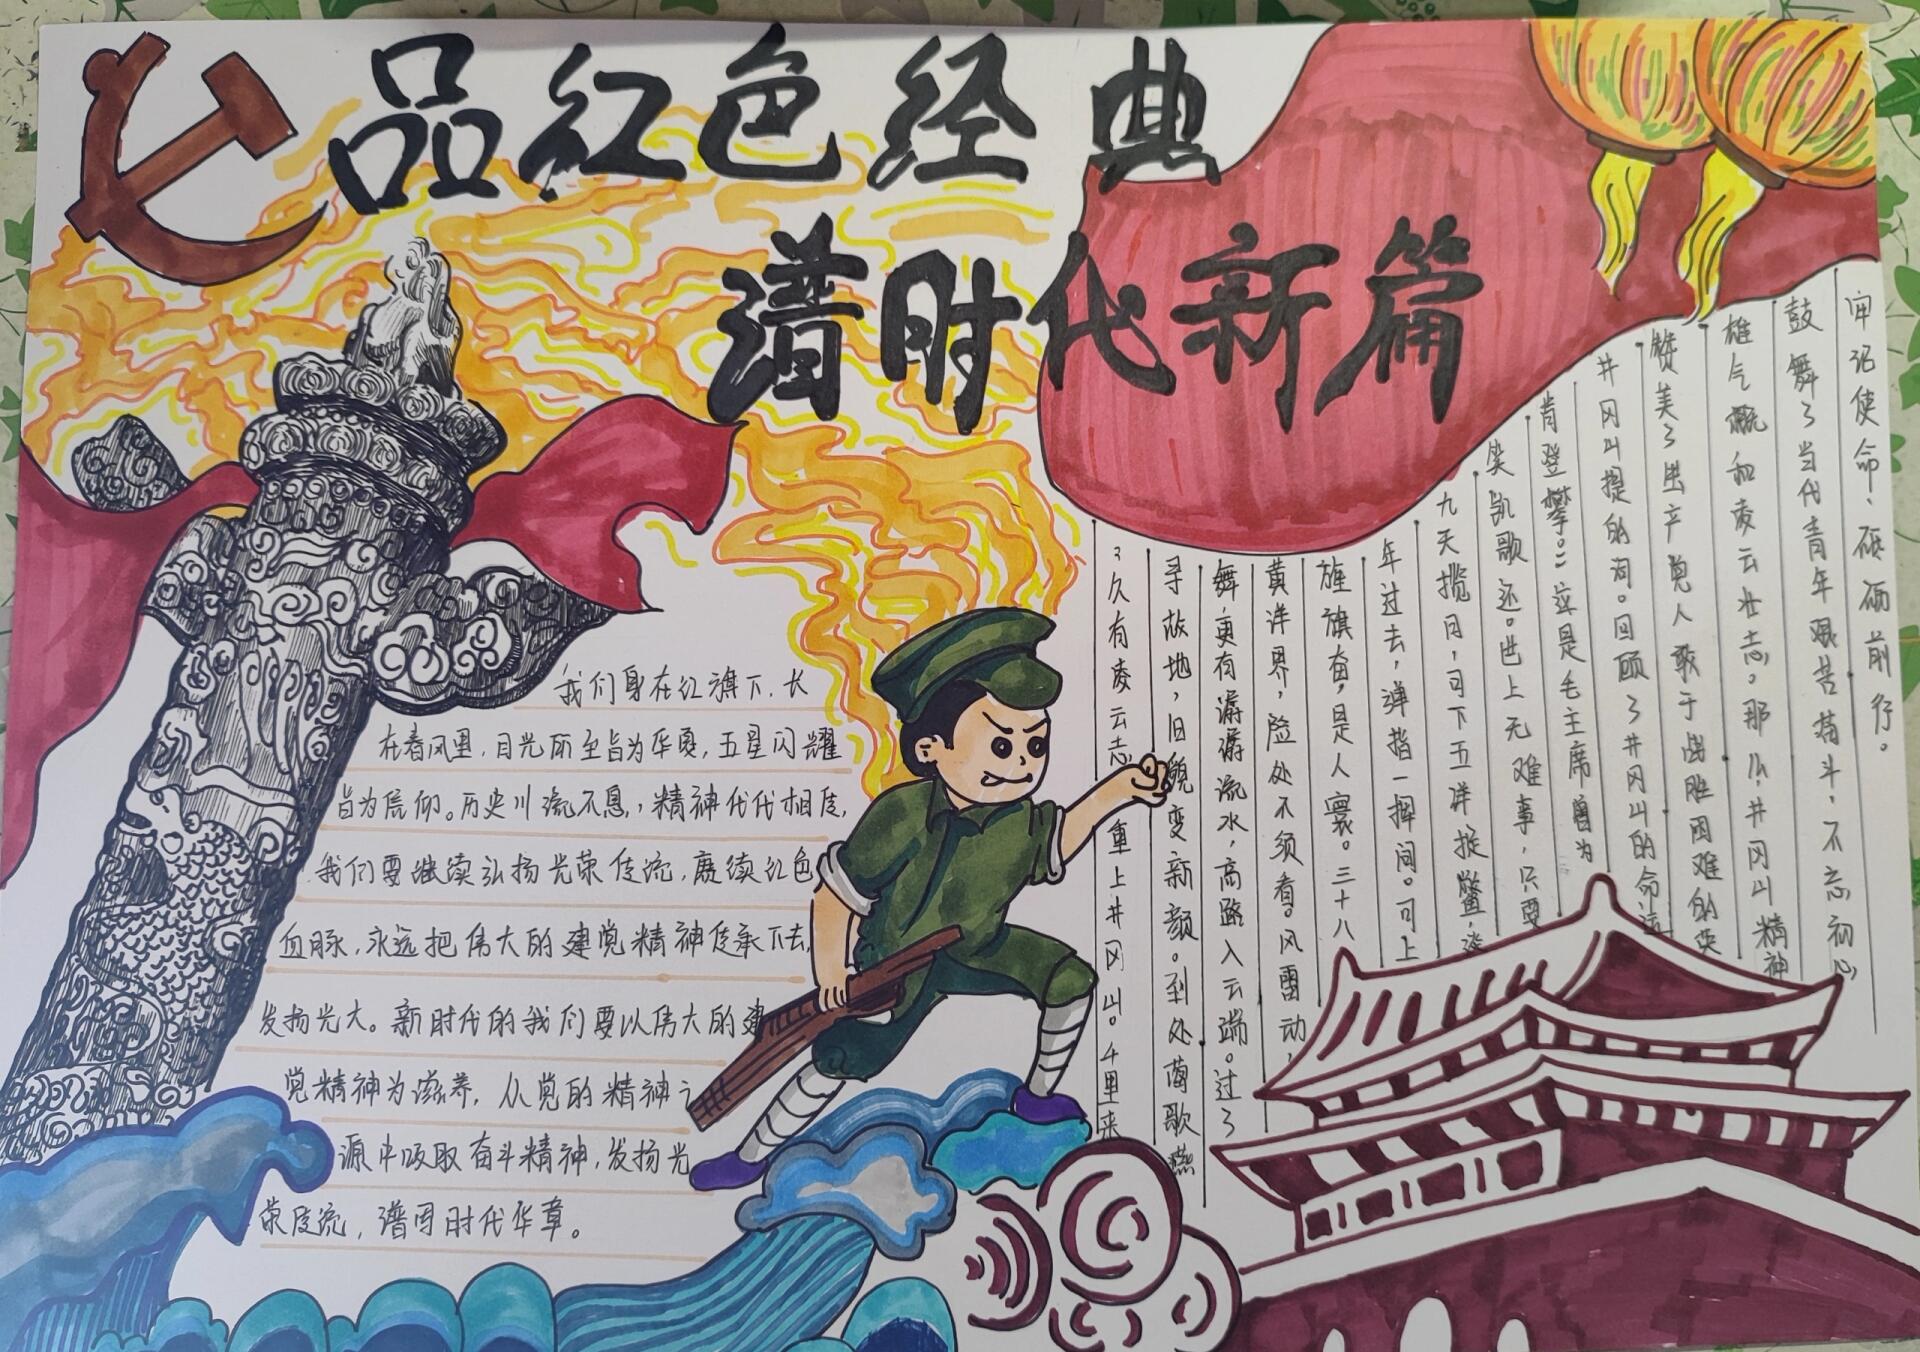 品红色经典
谱时代新篇
我们身在红旗下,长
在春风里,目光所至皆为华夏,五星闪耀
皆为信仰。历史川流不息,精神代代相传,
我们要继续弘扬光荣传统,赓续红色
血脉,永远把伟大的建党精神传承下去,
发扬光大。新时代的我们要以伟大的建
党精神为滋养,从党的精神之
源中吸取奋斗精神,发扬光
荣传统,谱时代华章。
久有凌云志,重上井冈山。千里来
寻故地,旧貌变新颜。到处莺歌燕
舞,更有潺潺流水,高路入云端。过了
黄洋界,险处不须看。风雷动,
旌旗奋,是人寰。三十八
年过去,弹指一挥间。可上
九天揽月,可下五洋捉鳖,谈
笑凯歌还。世上无难事,只要
肯登攀。”这是毛主席曾为
井冈山提的词。回顾了井冈山的命运
赞美了共产党人敢于战胜困难的英
雄气概和凌云壮志。那么井冈山精神
鼓舞了当代青年艰苦奋斗、不忘初心
牢记使命、砥砺前行。